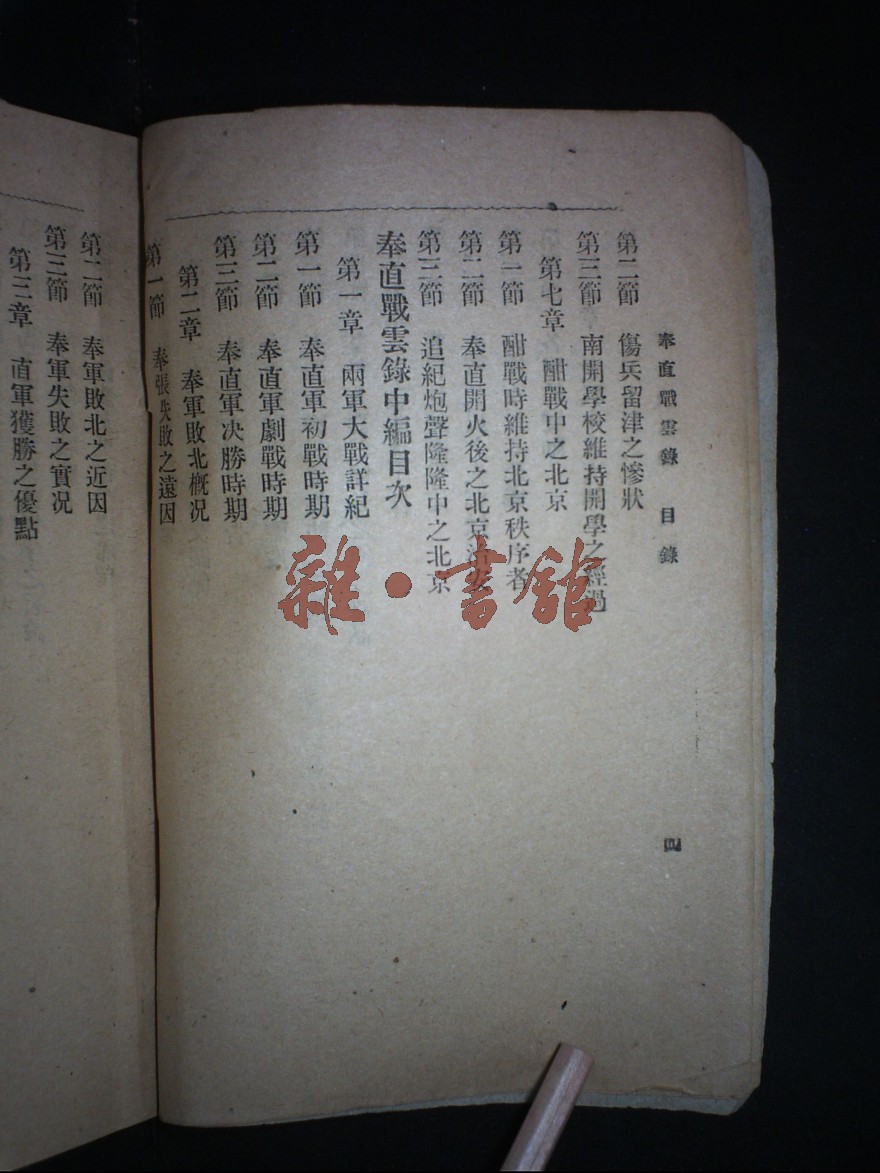 奉直戰雲錄 目錄
四
第二節 傷兵留津之慘狀
第三節 南開學校維持開學之經過
第七章 酣戰中之北京
第一節 酣戰時維持北京秩序者
第二節 奉直開火後之北京治安
第三節 追紀炮聲隆隆中之北京
奉直戰雲錄中編目次
第一章 兩軍大戰詳紀
第一節 奉直軍初戰時期
第二節 奉直軍劇戰時期
第三節 奉直軍決勝時期
第二章 奉軍敗北概况
第一節 奉張失敗之遠因
第二節 奉軍敗北之近因
第三節 奉軍失敗之實况
第三章 直軍獲勝之優點
雜·書館